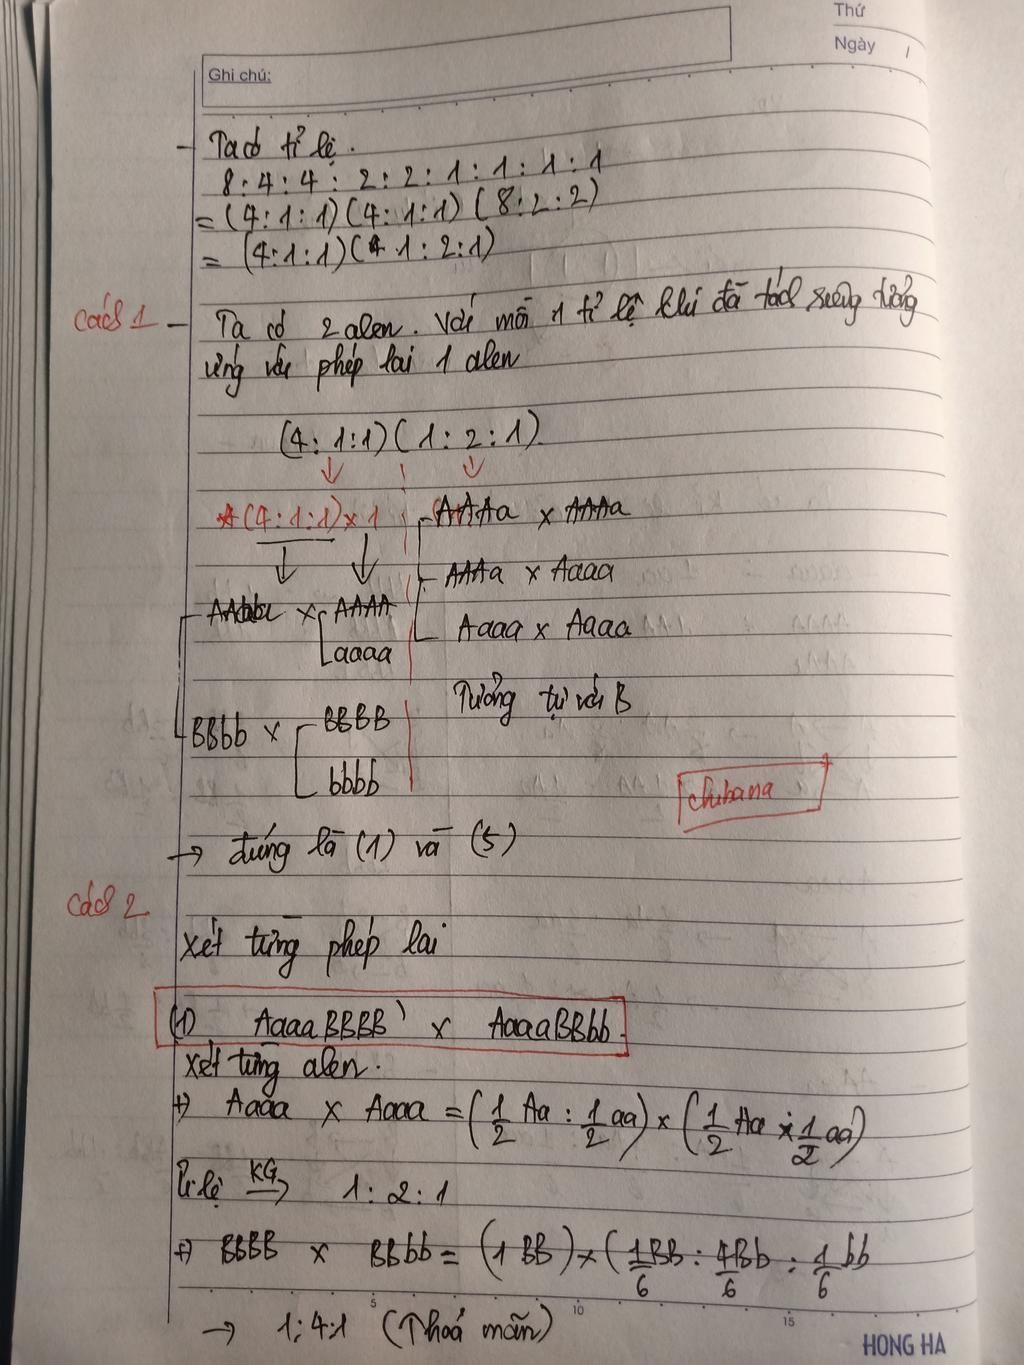 Thứ
Ngày
Ghi chú:
- Ta có tỉ lệ.
8:4:4:2:2:1:1:1:1
= (4:1:1)(4:1:1)(8:2:2)
= (4:1:1)(1:2:1)
Cách 1 - Ta có 2 alen. Với mỗi 1 tỉ lệ khi đã tách riêng tương
ứng với phép lai 1 alen
(4:1:1)(1:2:1).
(4:1:1) x 1
AAAa x AAAa
AAAa x Aaaa
AAaa x AAAA
aaaa
Aaaa x Aaaa
Tương tự với B
BBbb x BBBB
bbbb
chubana
→ đúng là (1) và (5)
Cách 2
xét từng phép lai
(1) AaaaBBBB x AaaaBBbb.
xét từng alen.
+) Aaaa x Aaaa = (1/2 Aa : 1/2 aa) x (1/2 Aa : 1/2 aa)
Tỉ lệ KG → 1:2:1
+) BBBB x BBbb = (1 BB) x (1/6 BB : 4/6 Bb : 1/6 bb
→ 1:4:1 (Thoả mãn)
5 10 15
HONG HA